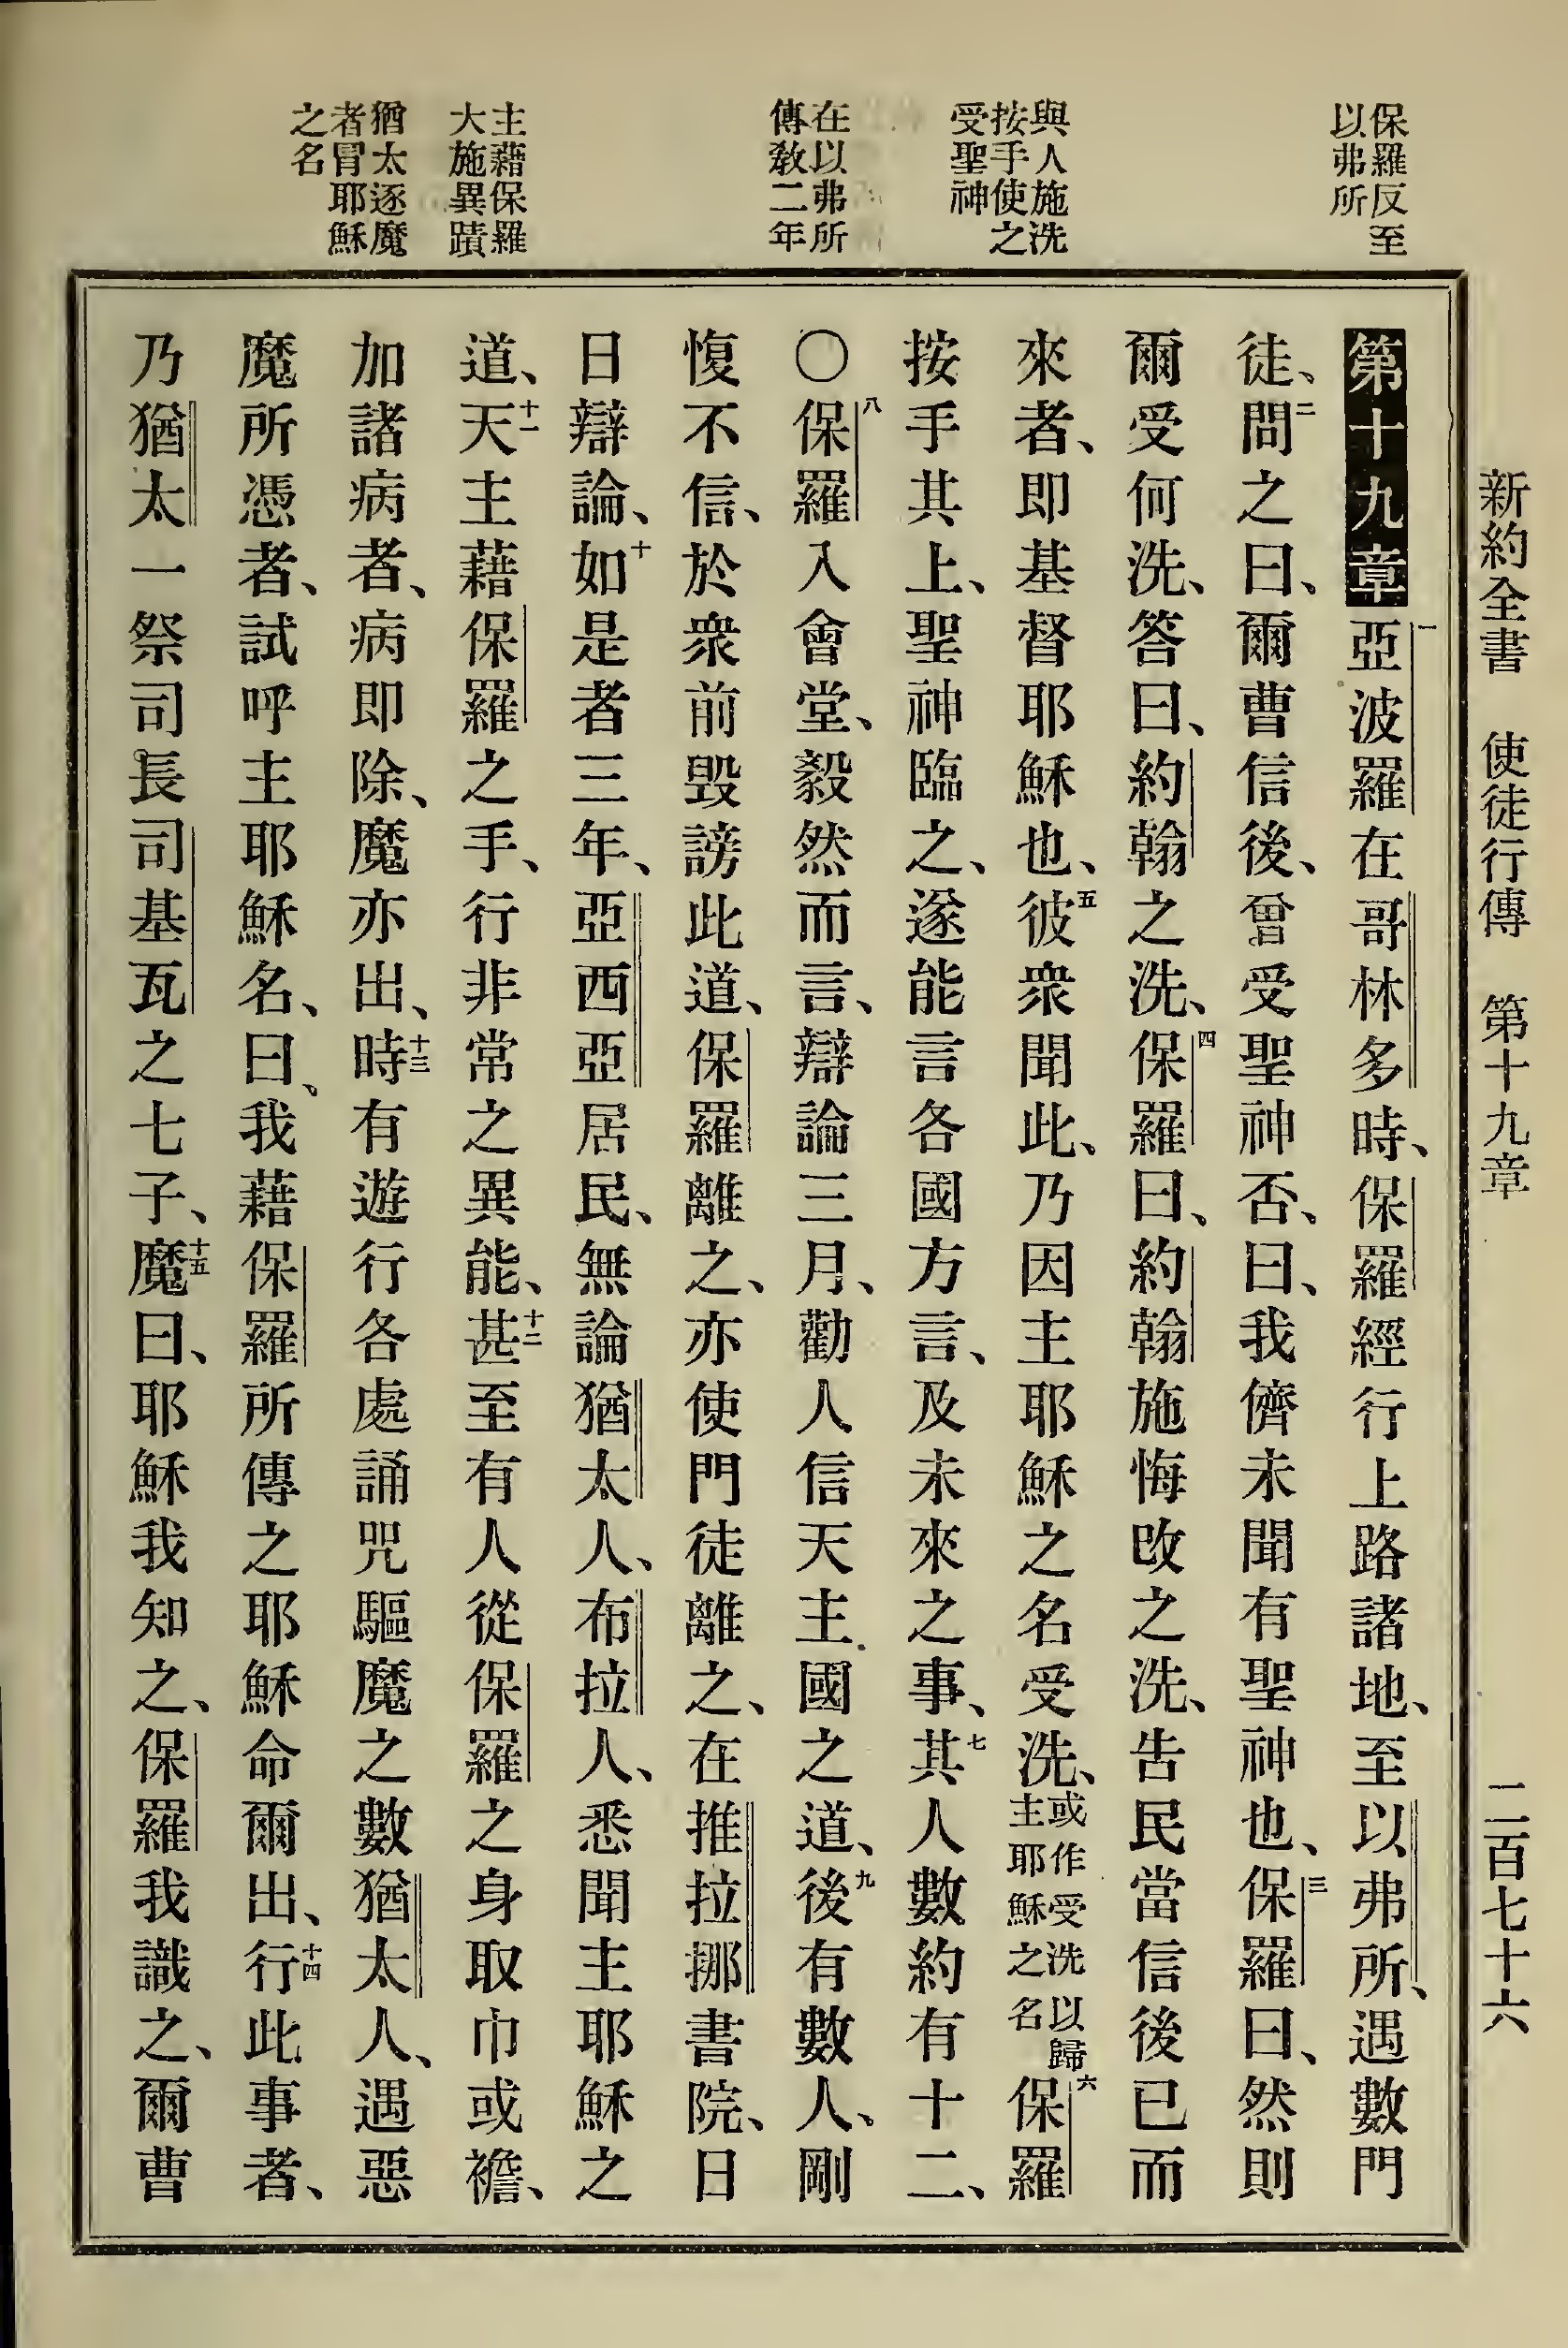 新約全書　使徒行傳　第十九章　二百七十六
保羅反至
以弗所
與人施洗
按手使之
受聖神
在以弗所
傳敎二年
主藉保羅
大施異蹟
猶太逐魔
者冒耶穌
之名
第十九章一亞波羅在哥林多時、保羅經行上路諸地、至以弗所、遇數門
徒、二問之曰、爾曹信後、曾受聖神否、曰、我儕未聞有聖神也、三保羅曰、然則
爾受何洗、答曰、約翰之洗、四保羅曰、約翰施悔改之洗、告民當信後已而
來者、即基督耶穌也、五彼衆聞此、乃因主耶穌之名受洗、或作受洗以歸主耶穌之名六保羅
按手其上、聖神臨之、遂能言各國方言、及未來之事、七其人數約有十二、
〇八保羅入會堂、毅然而言、辯論三月、勸人信天主國之道、九後有數人、剛
愎不信、於衆前毀謗此道、保羅離之、亦使門徒離之、在推拉挪書院、日
日辯論、十如是者三年、亞西亞居民、無論猶太人、布拉人、悉聞主耶穌之
道、十一天主藉保羅之手、行非常之異能、十二甚至有人從保羅之身取巾或襜、
加諸病者、病即除、魔亦出、十三時有遊行各處誦咒驅魔之數猶太人、遇惡
魔所憑者、試呼主耶穌名、曰、我藉保羅所傳之耶穌命爾出、十四行此事者、
乃猶太一祭司長司基瓦之七子、十五魔曰、耶穌我知之、保羅我識之、爾曹